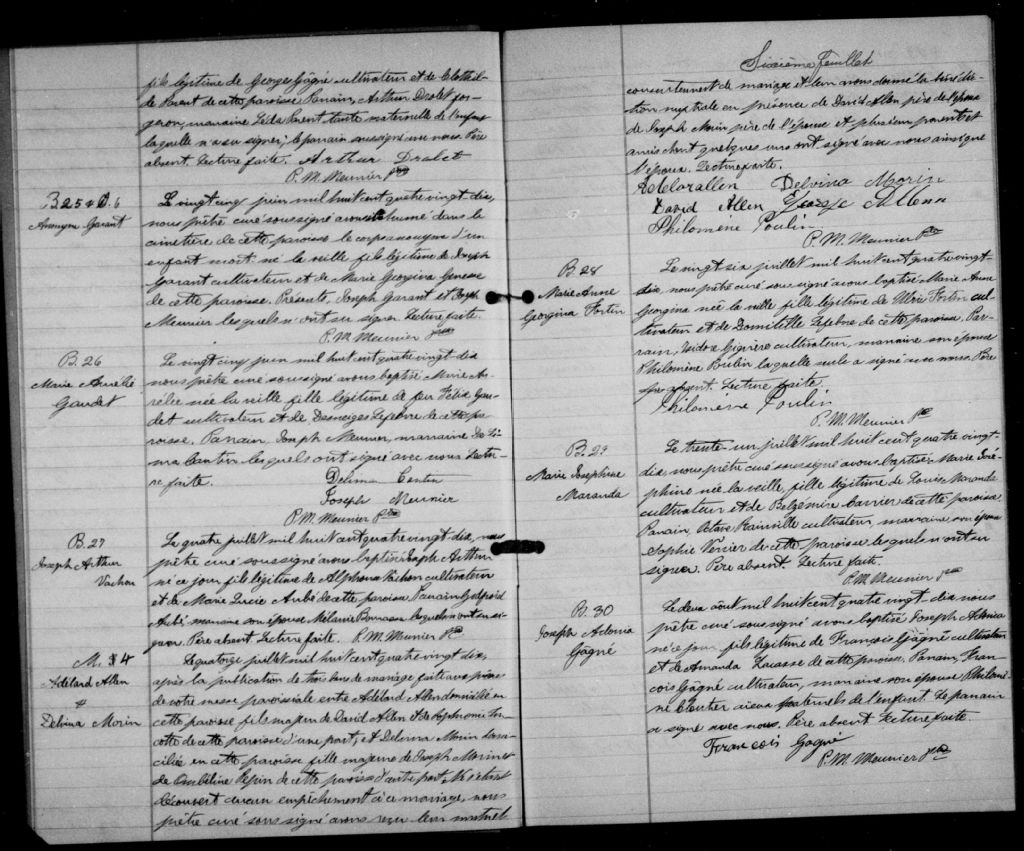 fils légitime de Georges Gâgné cultivateur et de Clothil-
de Parent de cette paroisse Parrain, Arthur Drolet for-
geron, marraine Léda Parent tante maternelle de l'enfant
laquelle n'a su signer; le parrain soussigné avec nous. Père
absent. Lecture faite. Arthur Drolet
P. M. Meunier Ptre
B 25 & D. 6
Anonyme Garant
Le vingt cinq juin mil huit cent quatre vingt dix,
nous prêtre curé soussigné avons inhumé dans le
cimetière de cette paroisse le corps anonyme d'un
enfant mort-né la veille fils légitime de Joseph
Garant cultivateur et de Marie Georgina
de cette paroisse. Présents, Joseph Garant et Joseph
Meunier lesquels n'ont su signer Lecture faite.
P. M. Meunier Ptre
B. 26
Marie Aurélie
Gaudet
Le vingt cinq juin mil huit cent quatre vingt dix
nous prêtre curé soussigné avons baptisé Marie Au-
rélie née la veille fille légitime de feu Félix Gau-
det cultivateur et de Desneiges Lefebvre de cette pa-
roisse. Parrain, Joseph Meunier, marraine Dé-
lima Cantin lesquels ont signé avec nous Lectu-
re faite.
Delima Cantin
Joseph Meunier
P. M. Meunier Ptre
B. 27
Joseph Arthur
Vachon
Le quatre juillet mil huit cent quatre vingt dix, nous
prêtre curé soussigné avons baptisé Joseph Arthur
né ce jour fils légitime de Alphonse Vachon cultivateur
et de Marie Lucie Aubé de cette paroisse Parrain Godfroid
Aubé marraine son épouse Mélanie Bourassa lesquels n'ont su si-
gner. Père absent Lecture faite. P. M. Meunier Ptre
M. 4
Adélard Allen
&
Delvina Morin
Le quatorze juillet mil huit cent quatre vingt dix,
après la publication de trois bans de mariage fait aux prônes
de notre messe paroissiale entre Adélard Allen domicilié en
cette paroisse fils majeur de David Allen et de Tur-
cotte de cette paroisse d'une part, et Delvina Morin domi-
ciliée en cette paroisse fille majeure de Joseph Morin et
de Ombéline Pepin de cette paroisse d'autre part, Ne s'étant
découvert aucun empêchement à ce mariage, nous
prêtre curé soussigné avons reçu leur mutuel
Sixième feuillet
consentement de mariage et leur avons donné la bénédic-
tion nuptiale en présence de David Allen père de l'époux
de Joseph Morin père de l'épouse et plusieurs parents et
amis dont quelques uns ont signé avec nous ainsi que
l'époux. Lecture faite.
Adelar allen Delvina Morin
David Allen Allena
Philomene Poulin
P. M. Meunier Ptre
B. 28
Marie Anne
Georgina Fortin
Le vingt six juillet mil huit cent quatre vingt-
dix, nous prêtre curé soussigné avons baptisé Marie Anne
Georgina née la veille fille légitime de Ulric Fortin cul-
tivateur et de Domitille Lefebvre de cette paroisse. Par-
rain, Isidore Giguère cultivateur, marraine son épouse
Philomène Poulin laquelle seule a signé avec nous. Père
présent. Lecture faite.
Philomène Poulin
P. M. Meunier Ptre
B. 29
Marie Josephine
Maranda
Le trente-un juillet mil huit cent quatre vingt-
dix, nous prêtre curé soussigné avons baptisé Marie José-
phine née la veille, fille légitime de Louis Maranda
cultivateur et de Belzémire Carrier de cette paroisse
Parrain, Octave Rainville cultivateur, marraine son épouse
Sophie Verrier de cette paroisse lesquels n'ont su
signer. Père absent. Lecture faite.
P. M. Meunier Ptre
B. 30
Joseph Adonia
Gâgné
Le deux août mil huit cent quatre vingt-dix nous
prêtre curé soussigné avons baptisé Joseph Adonia
né ce jour fils légitime de François Gâgné cultivateur
et de Amanda Lacasse de cette paroisse. Parrain, Fran-
cois Gâgné cultivateur, marraine son épouse Philomè-
ne Cloutier aieux paternels de l'enfant. Le parrain
a signé avec nous. Père absent Lecture faite.
Francois Gagné
P. M. Meunier Ptre